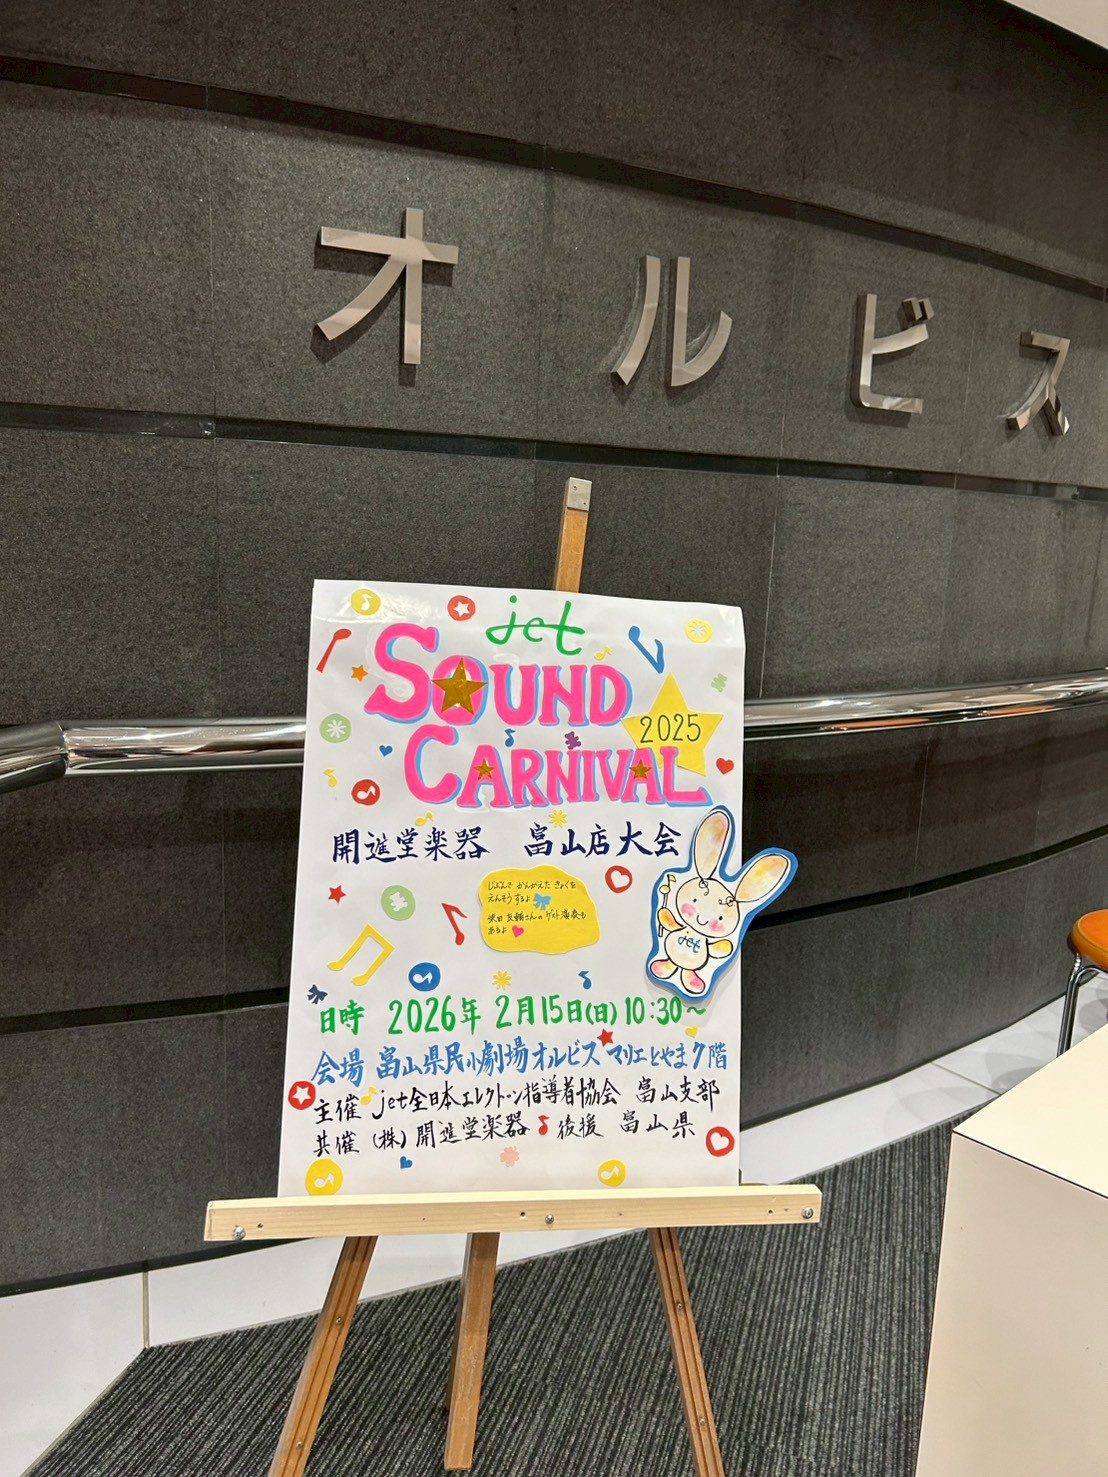 オルビス
jet
SOUND
2025
CARNIVAL
開進堂楽器 富山店大会
じぶんで かんがえた きょくを
えんそうするよ
さんの ゲスト演奏も
あるよ
jet
日時 2026年 2月15日(日) 10:30〜
会場 富山県民小劇場オルビス マリエとやま7階
主催 jet全日本エレクトーン指導者協会 富山支部
共催 (株)開進堂楽器 後援 富山県